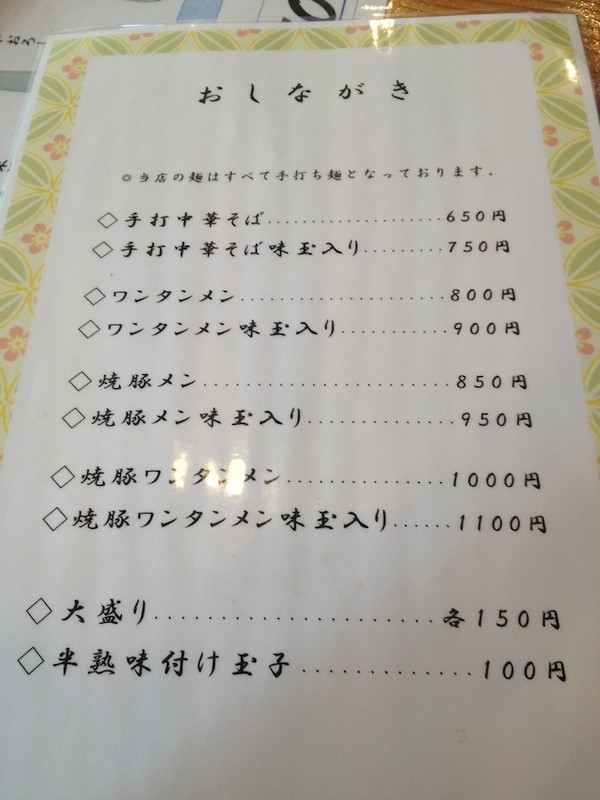 おしながき
◎当店の麺はすべて手打ち麺となっております。
◇手打中華そば......................650円
◇手打中華そば味玉入り..........750円
◇ワンタンメン..........................800円
◇ワンタンメン味玉入り..............900円
◇焼豚メン..............................850円
◇焼豚メン味玉入り..................950円
◇焼豚ワンタンメン..................1000円
◇焼豚ワンタンメン味玉入り......1100円
◇大盛り......................各150円
◇半熟味付け玉子..............100円